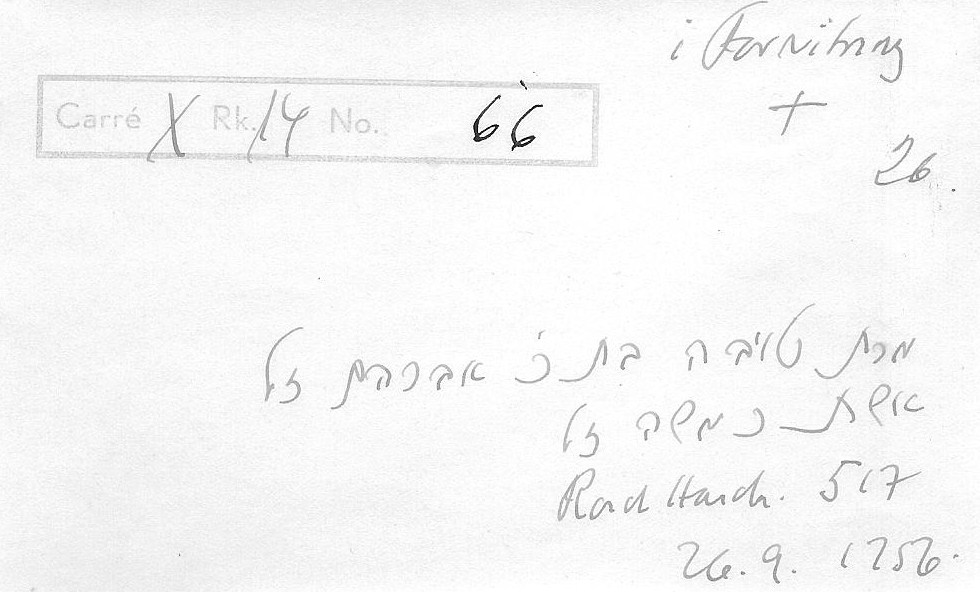 i Forvitring
+
Carré X Rk. 14 No. 66
26.
מרת טויבה בת כ' אברהם זל
אשת כ משה זל
Hardr. 517
26.9. 1756.